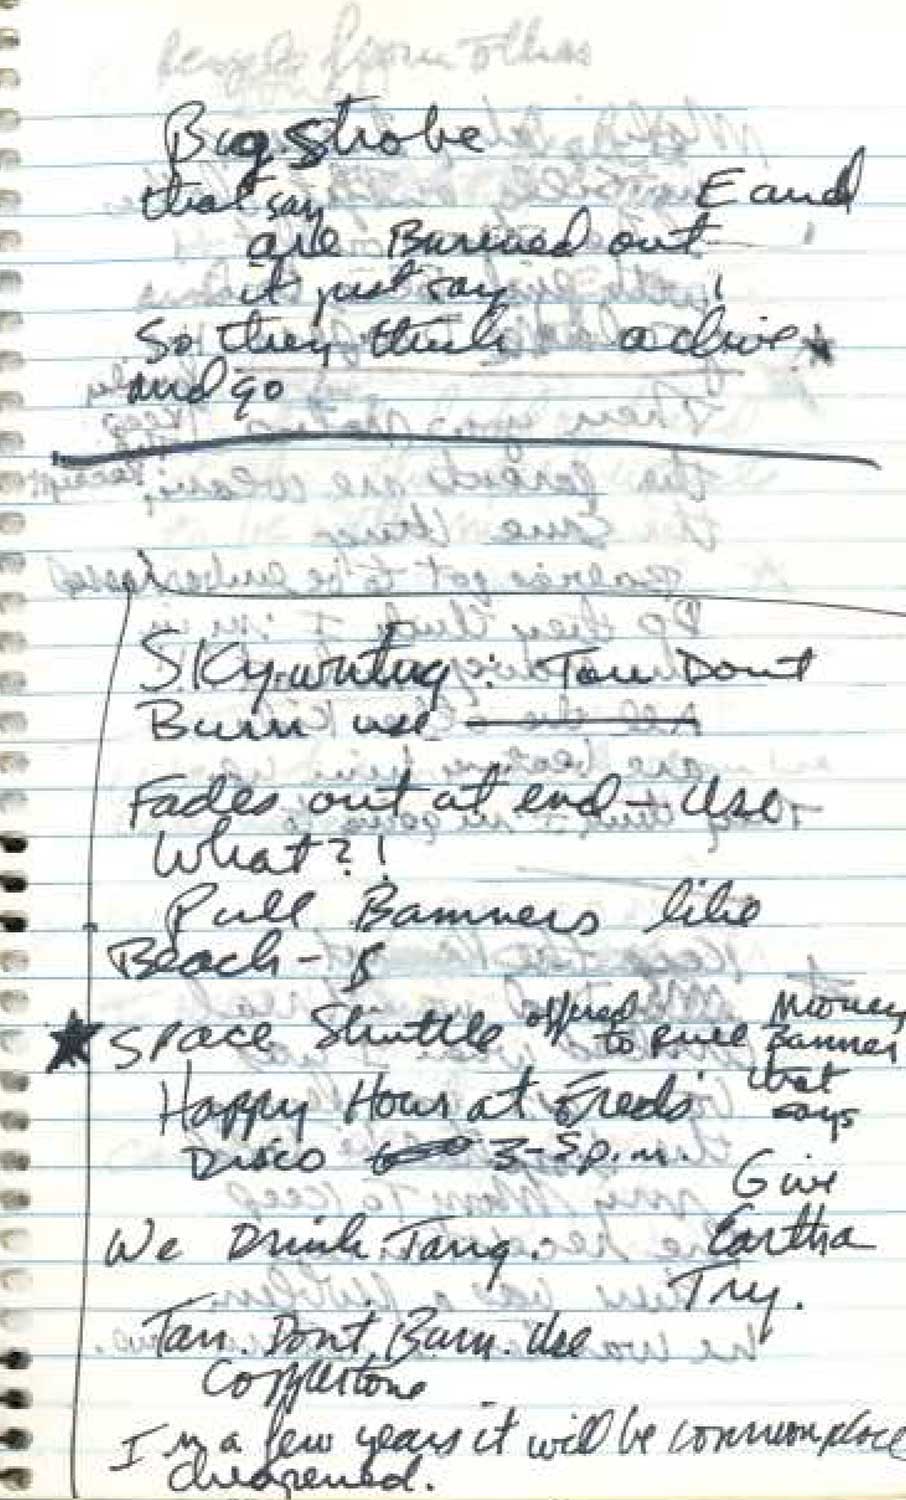 Big Strobe
that say E and
are Burned out
it just say !
So they think a drive
and go
Sky-writing: Tan Dont
Burn use
Fades out at end - Use
What?!
Pull Banners like
Beach -
Space Shuttle offered to pull money
Banner
that
says
Happy Hour at Freds
Disco 3-5 p.m.
Give
We Drink Tang. Eartha
Try.
Tan. Dont. Burn. Use
Coppertone
In a few years it will be commonplace